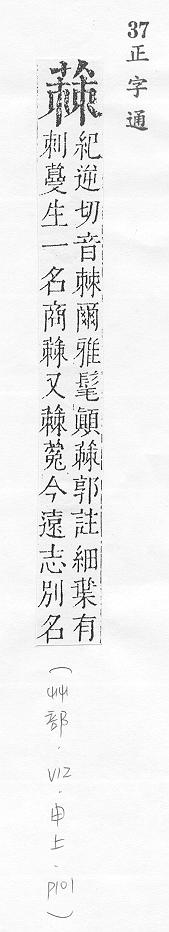 37
正字通
蕀
紀逆切音棘爾雅髦顛蕀郭註細葉有
刺蔓生一名商蕀又蕀菀今遠志別名
(艸部．V12．申上．P101)